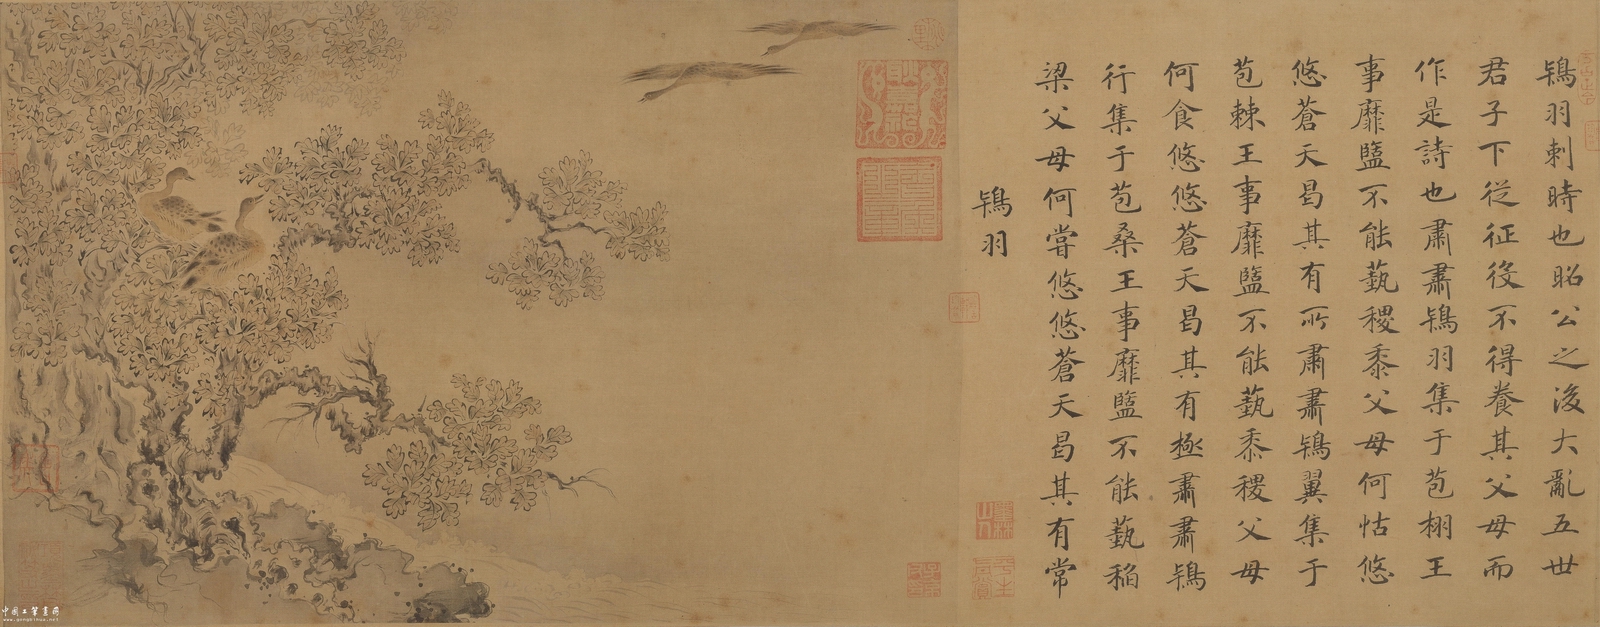 鴇羽刺時也昭公之後大亂五世
君子下從征役不得養其父母而
作是詩也肅肅鴇羽集于苞栩王
事靡盬不能蓺稷黍父母何怙悠
悠蒼天曷其有所肅肅鴇翼集于
苞棘王事靡盬不能蓺黍稷父母
何食悠悠蒼天曷其有極肅肅鴇
行集于苞桑王事靡盬不能蓺稻
梁父母何嘗悠悠蒼天曷其有常
鴇羽
中国工笔画网
www.gongbihua.net